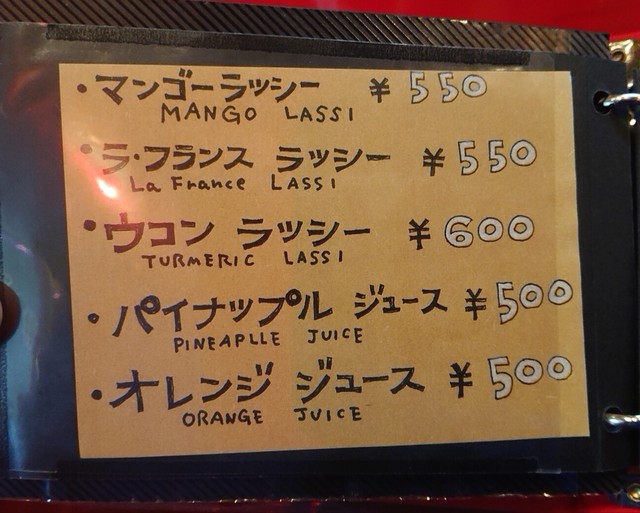 ・マンゴーラッシー ¥550
MANGO LASSI
・ラ・フランス ラッシー ¥550
La France LASSI
・ウコン ラッシー ¥600
TURMERIC LASSI
・パイナップル ジュース ¥500
PINEAPLLE JUICE
・オレンジ ジュース ¥500
ORANGE JUICE